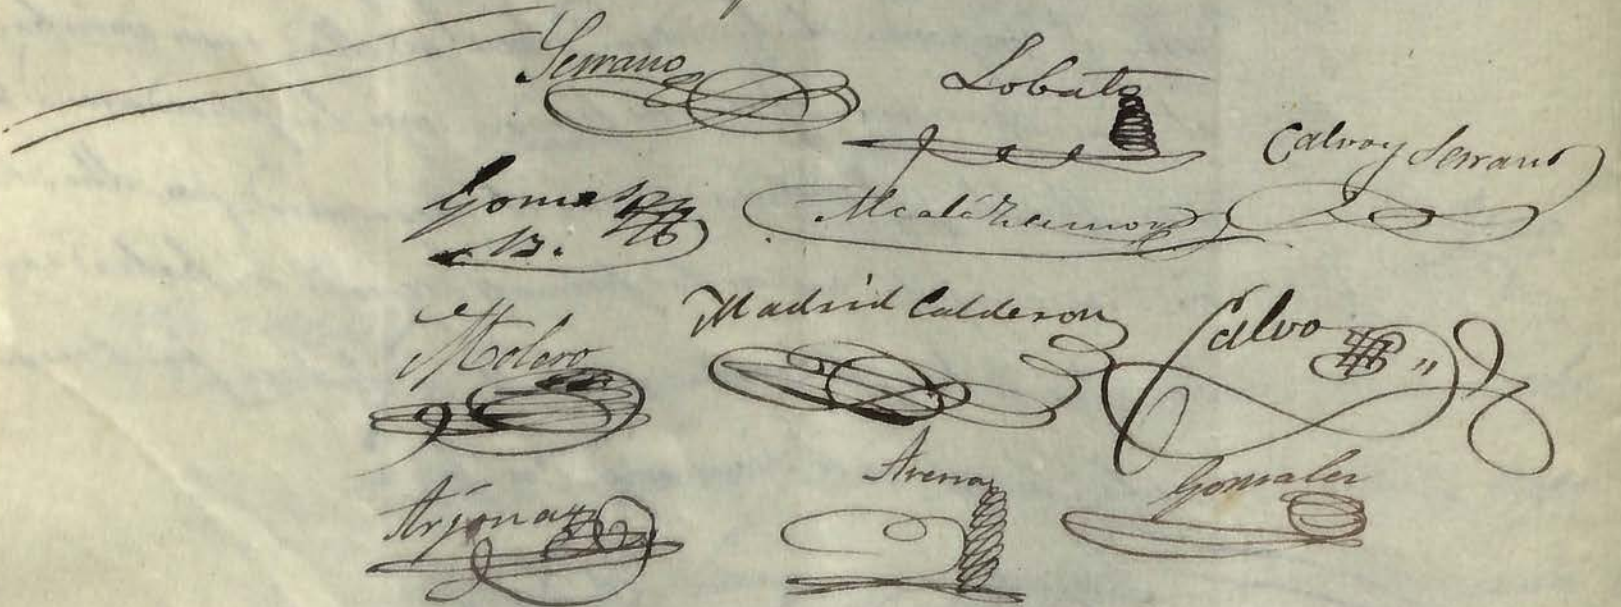 Serrano Lobato
Calvo y Serrano
Gomez Alcalá Zamora
B.
Molero Madrid Calderon Calvo
Arjona Arena Gonzalez